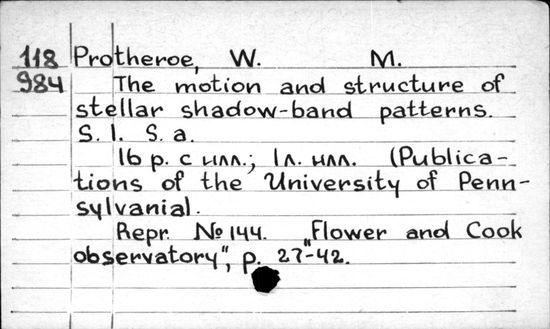 118 Protheroe, W. M.
984 The motion and structure of
stellar shadow-band patterns.
S. l. S. a.
16 p. с илл.; 1л. илл. (Publica-
tions of the University of Penn-
sylvanial.
Repr. № 144. „Flower and Cook
observatory", p. 27-42.